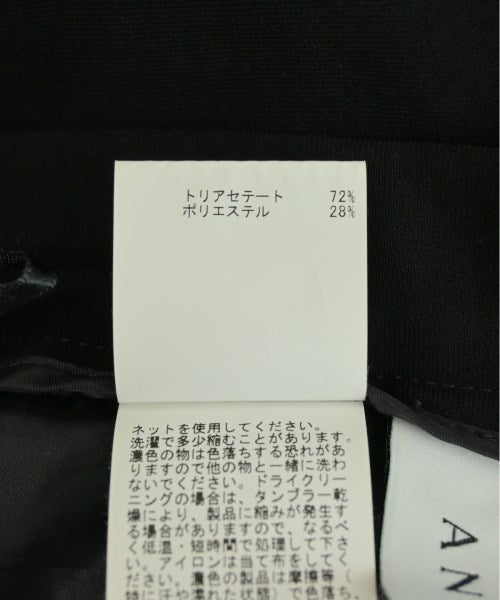 トリアセテート 72%
ポリエステル 28%
ネットを使用してください。
洗濯で多少縮むことがあります。
濃色の物は色落ちする恐れがあ
りますので他の物と一緒に洗わ
ないでください。ドライクリー
ニングの場合は、タンブラー乾
燥により、製品に縮みが発生す
る場合がありますので、なるべ
く低温・短時間で処理して下さ
い。アイロンは当て布をしてく
ださい。濃色の製品は摩擦等（
特に汗や濡れた状態）で色落ち、
AN